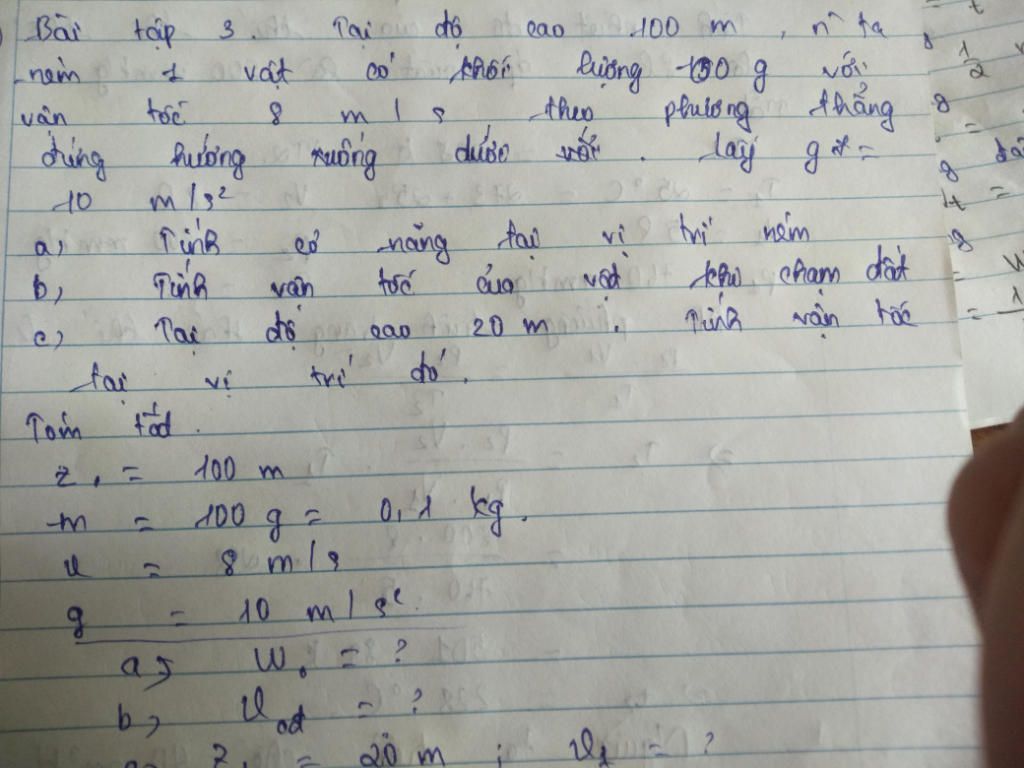 Bài tập 3. Tại độ cao 100 m, n ta
ném 1 vật có khối lượng 100 g với
vận tốc 8 m/s theo phương thẳng
đứng hướng xuống dưới với. lấy g =
10 m/s²
a, Tính cơ năng tại vị trí ném
b, Tính vận tốc của vật khi chạm đất
c, Tại độ cao 20 m. Tính vận tốc
tại vị trí đó.
Tóm tắt.
z₁ = 100 m
m = 100 g = 0,1 kg.
v = 8 m/s
g = 10 m/s²
a, W₀ = ?
b, v cđ = ?
z = 20 m ; v₁ = ?